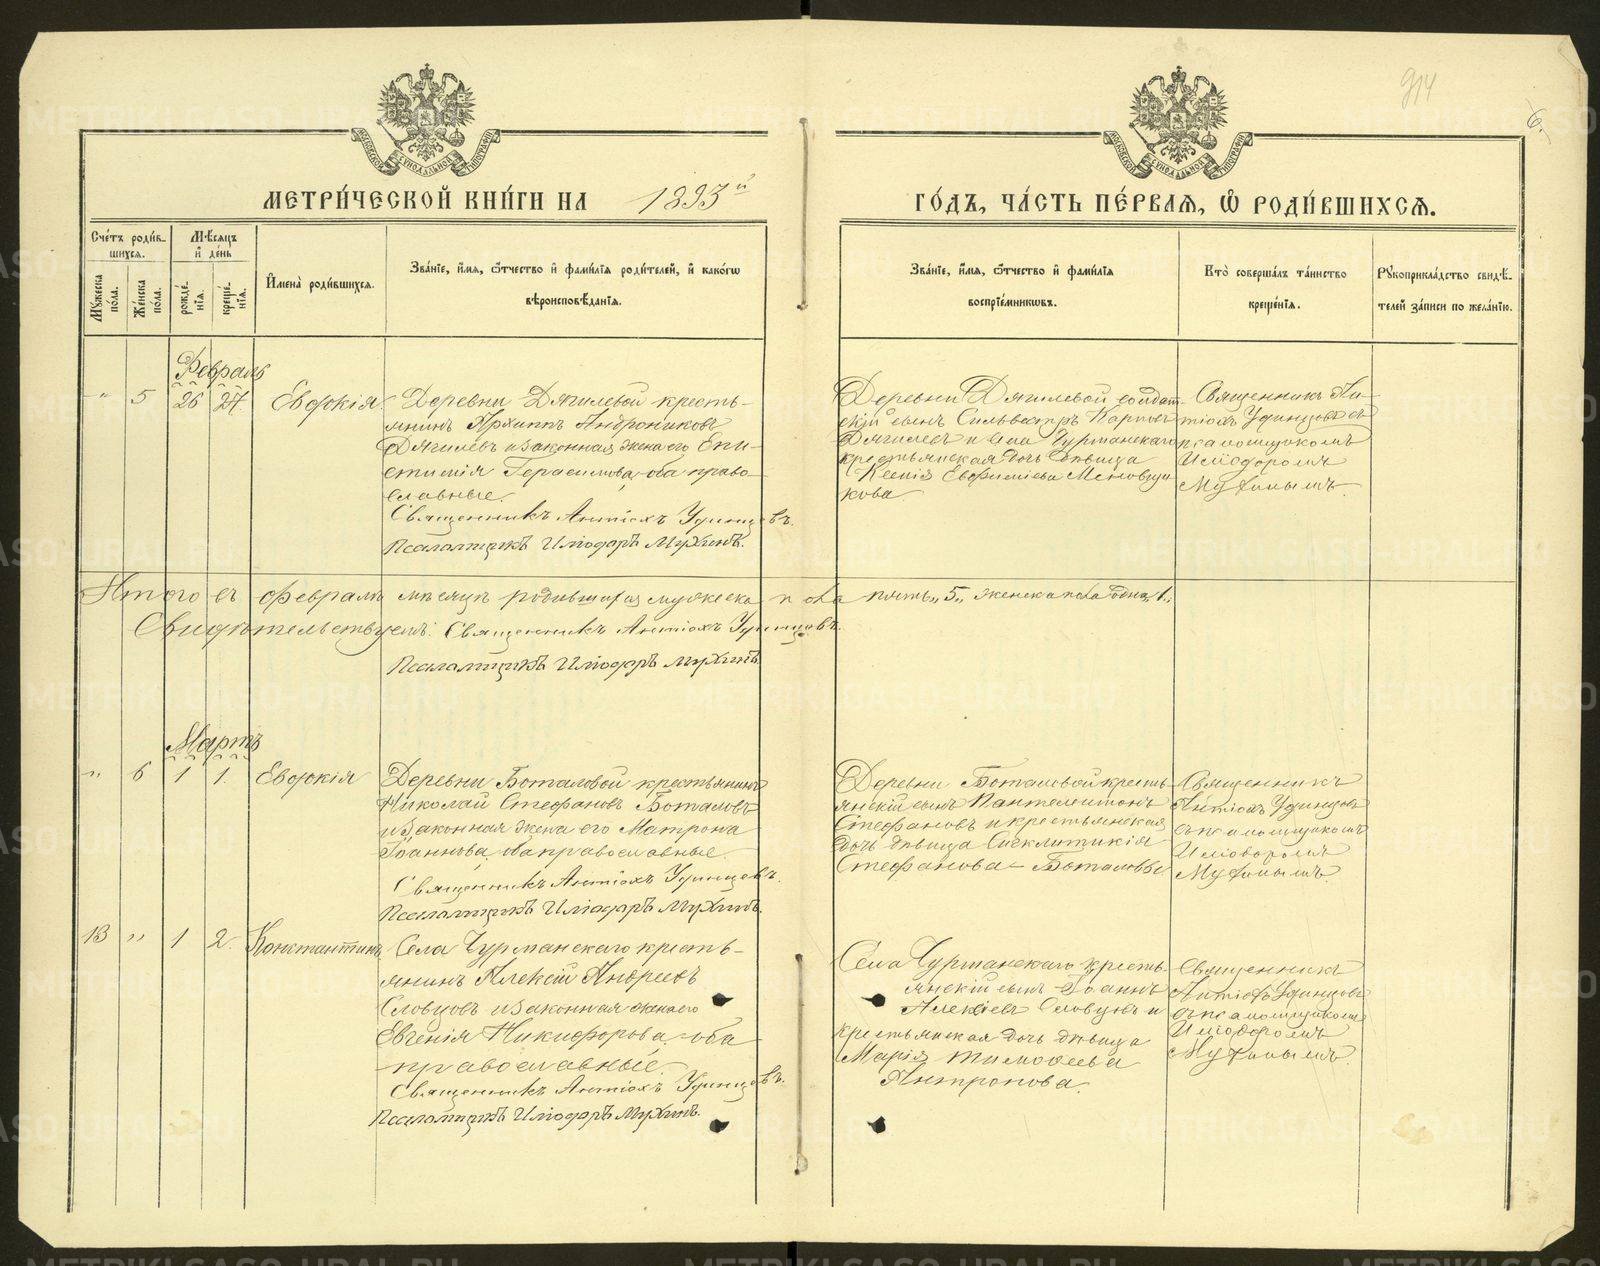 914
6.
МЕТРИ́ЧЕСКОЙ КНИ́ГИ НА 1893й
ГО́ДЪ, ЧА́СТЬ ПЕ́РВАѦ, Ѡ РОДИ́ВШИХСѦ.
МОСКОВСКОЙ СѴНОДАЛЬНОЙ ТИПОГРАФІИ
МОСКОВСКОЙ СѴНОДАЛЬНОЙ ТИПОГРАФІИ
Сче́тъ роди́в-
шихсѧ.
Мѣ́сяцъ
и҆ де́нь
Мꙋ́жеска
по́ла.
Же́нска
по́ла.
рожде́-
нїѧ.
креще́-
нїѧ.
И҆мена̀ роди́вшихсѧ.
Зва́нїе, и҆́мѧ, ѻ҆́тчество и҆ фами́лїѧ роди́телей, и҆ како́гѡ
вѣроисповѣ́данїѧ.
Зва́нїе, и҆́мѧ, ѻ҆́тчество и҆ фами́лїѧ
воспрїе́мникѡвъ.
Кто̀ соверша́лъ та́инство
креще́нїѧ.
Рꙋкоприкла́дство свидѣ́-
телей за́писи по жела́нїю.
Февраль
" 5 26 27 Евдокія
Деревни Дягилевой кресть-
янинъ Архиппъ Андрониковъ
Дягилевъ и законная жена его Епи-
стимія Герасимова, оба право-
славные.
Священникъ Антіохъ Удинцевъ.
Псаломщикъ Иліодоръ Мухинъ.
Деревни Дягилевой солдат-
скій сынъ Сильвестръ Карповъ
Дягилевъ и села Чурманскаго
крестьянская дочь дѣвица
Ксенія Евфиміева Меновщи-
кова
Священникъ Ан-
тіохъ Удинцевъ съ
псаломщикомъ
Иліодоромъ
Мухинымъ.
Итого въ февралѣ мѣсяцѣ родившихся мужеска пола пять „5„ женска пола одна „1„
Свидѣтельствуемъ: Священникъ Антіохъ Удинцевъ.
Псаломщикъ Иліодоръ Мухинъ.
Мартъ
" 6 1 1. Евдокія
Деревни Боталовой крестьянинъ
Николай Стефановъ Боталовъ
и законная жена его Матрона
Іоаннова, оба православные.
Священникъ Антіохъ Удинцевъ.
Псаломщикъ Иліодоръ Мухинъ.
Деревни Боталовой кресть-
янскій сынъ Пантелеимонъ
Стефановъ и крестьянская
дочь дѣвица Сигклитикія
Стефанова Боталовы
Священникъ
Антіохъ Удинцевъ
съ псаломщикомъ
Иліодоромъ
Мухинымъ.
13 " 1 2. Константинъ
Села Чурманскаго кресть-
янинъ Алексій Андреевъ
Словцовъ и законная жена его
Евгенія Никифорова, оба
православные.
Священникъ Антіохъ Удинцевъ.
Псаломщикъ Иліодоръ Мухинъ.
Села Чурманскаго кресть-
янскій сынъ Іоаннъ
Алексіевъ Словцовъ и
крестьянская дочь дѣвица
Марія Тимоѳеева
Антропова.
Священникъ
Антіохъ Удинцевъ
съ псаломщикомъ
Иліодоромъ
Мухинымъ.
METRIKI.GASO-URAL.RU